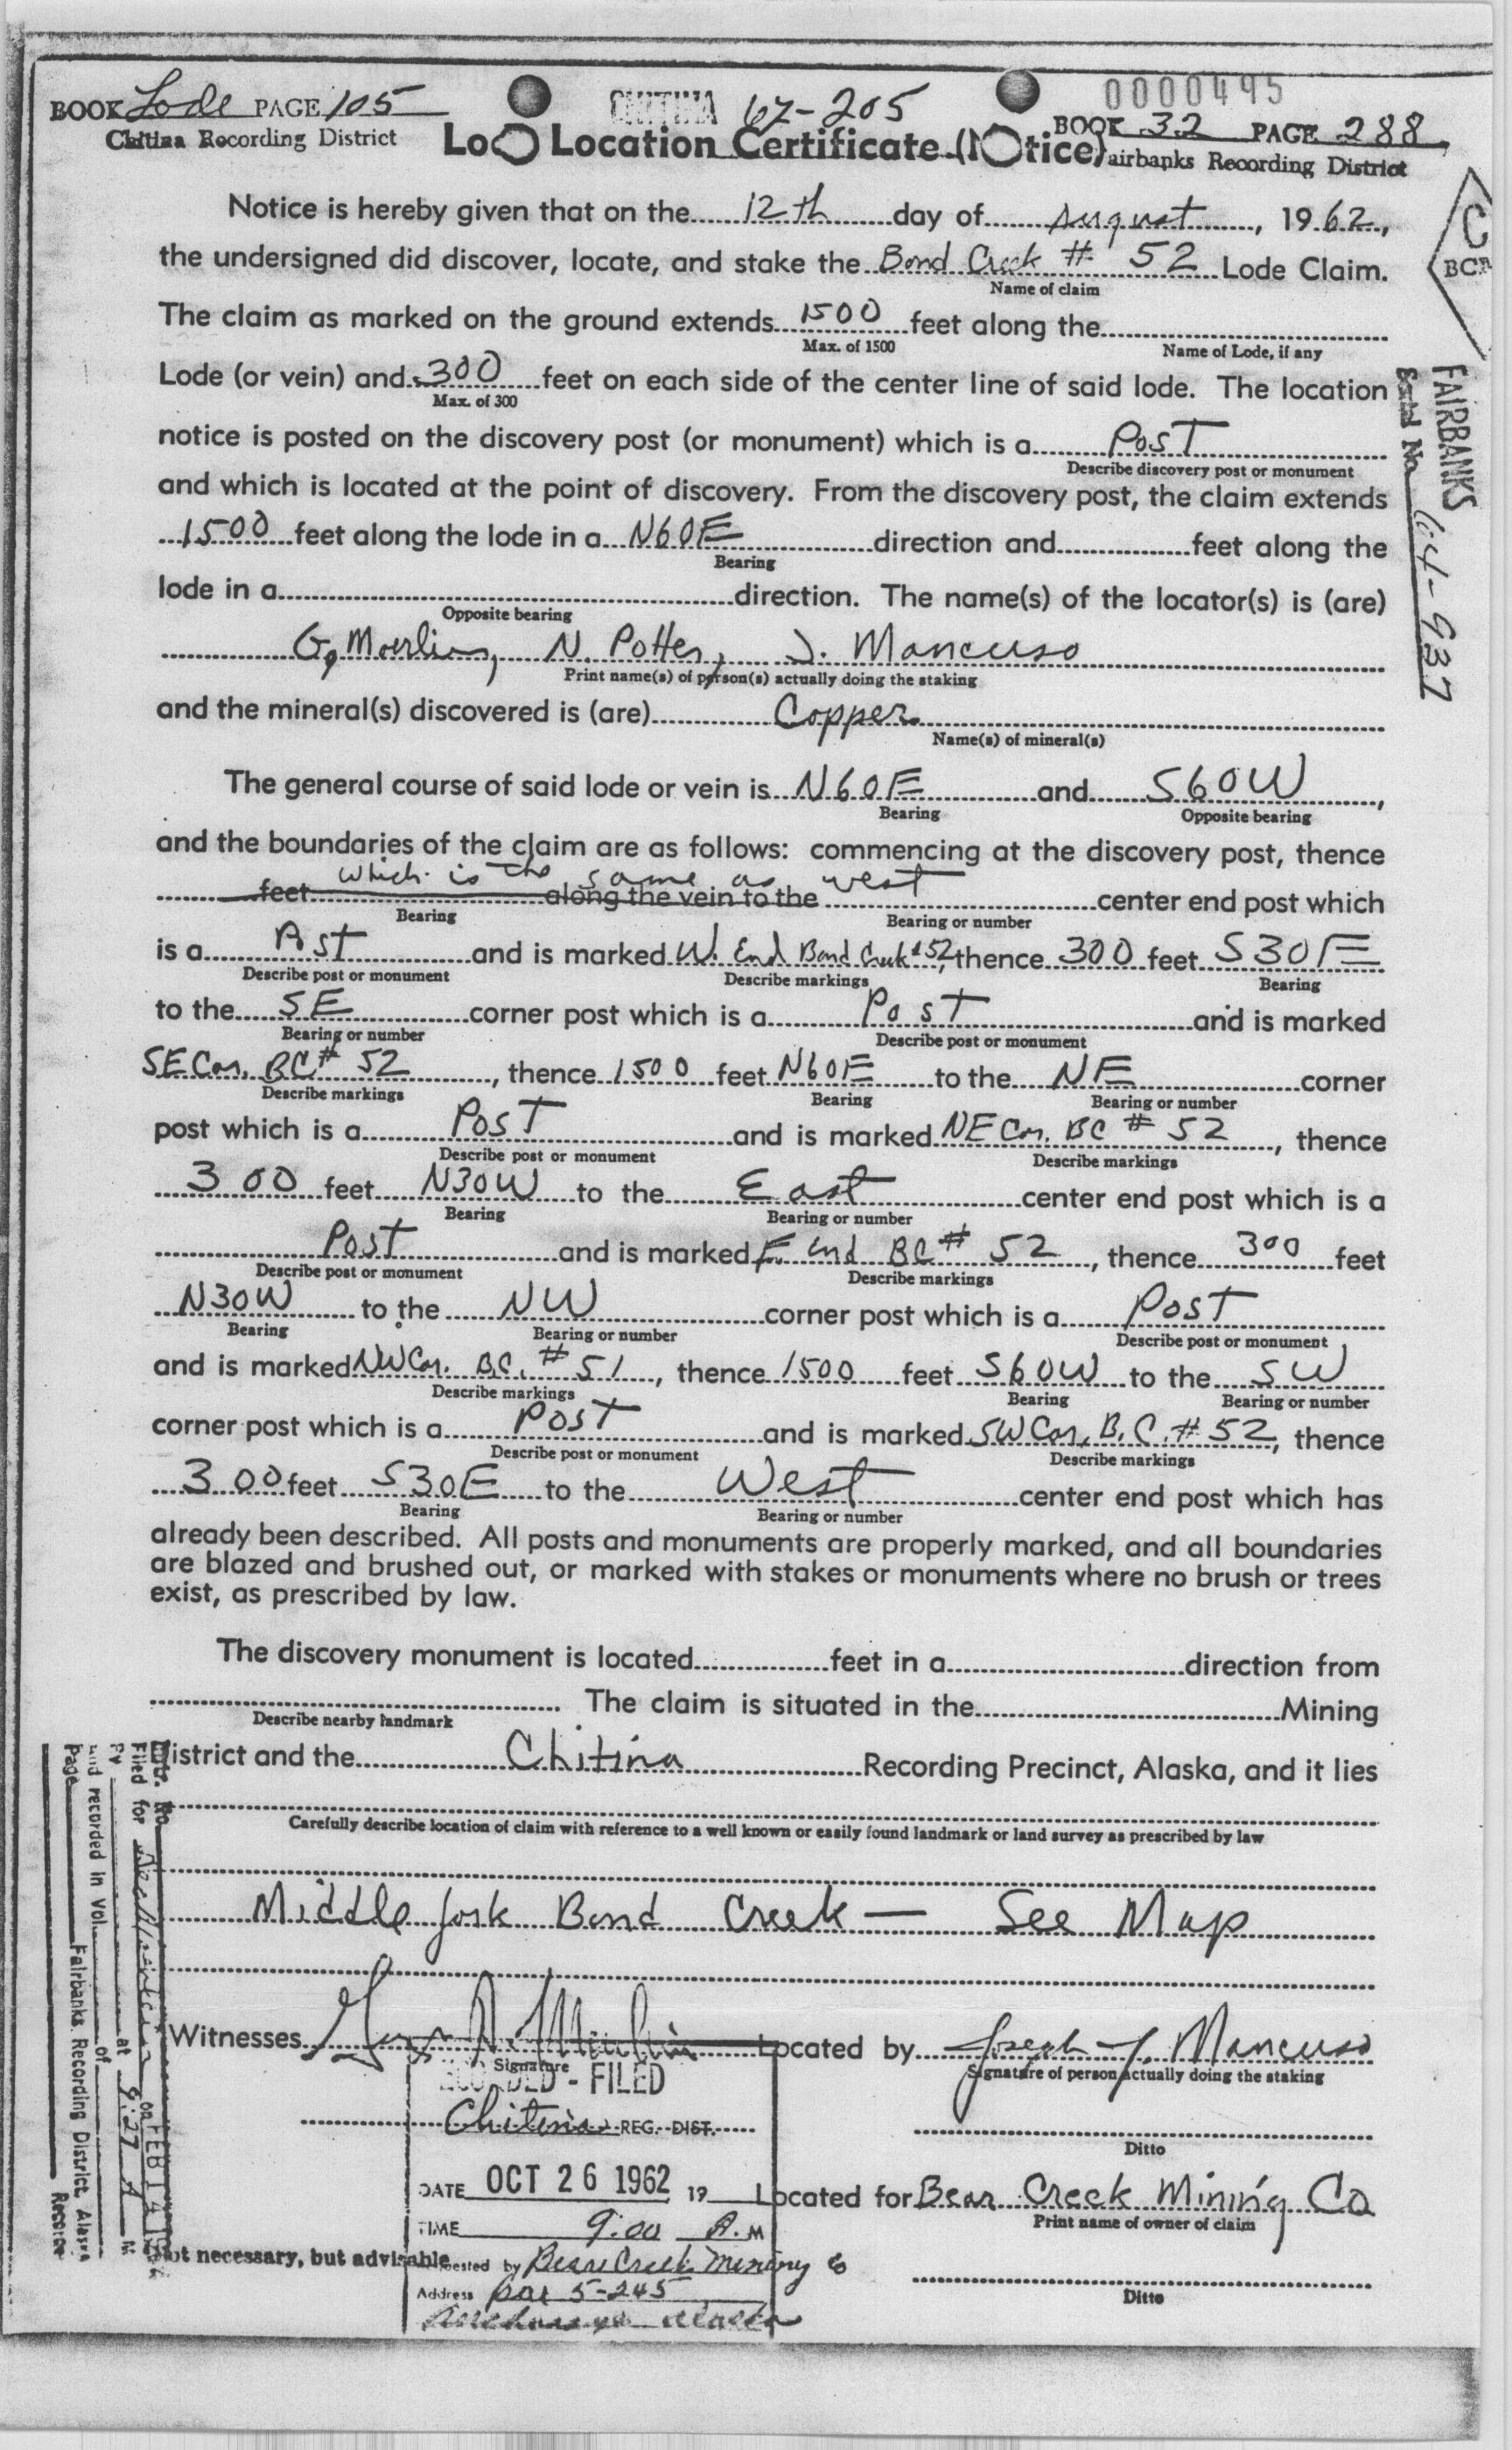 BOOK Lode PAGE 105
Chitina Recording District
CHITINA 62-205
0000495
BOOK 32 PAGE 288
Fairbanks Recording District
Location Certificate (Notice)
Notice is hereby given that on the 12th day of August, 1962,
the undersigned did discover, locate, and stake the Bond Creek # 52 Lode Claim.
Name of claim
The claim as marked on the ground extends 1500 feet along the
Max. of 1500 Name of Lode, if any
Lode (or vein) and 300 feet on each side of the center line of said lode. The location
Max. of 300
notice is posted on the discovery post (or monument) which is a Post
Describe discovery post or monument
and which is located at the point of discovery. From the discovery post, the claim extends
1500 feet along the lode in a N60E direction and feet along the
Bearing
lode in a direction. The name(s) of the locator(s) is (are)
Opposite bearing
G. Moerlein, N. Potter, J. Mancuso
Print name(s) of person(s) actually doing the staking
and the mineral(s) discovered is (are) Copper
Name(s) of mineral(s)
The general course of said lode or vein is N60E and S60W,
Bearing Opposite bearing
and the boundaries of the claim are as follows: commencing at the discovery post, thence
which is the same as west
feet along the vein to the center end post which
Bearing Bearing or number
is a Post and is marked W. End Bond Creek #52, thence 300 feet S30E
Describe post or monument Describe markings Bearing
to the SE corner post which is a Post and is marked
Bearing or number Describe post or monument
SE Cor. BC# 52, thence 1500 feet N60E to the NE corner
Describe markings Bearing Bearing or number
post which is a Post and is marked NE Cor. BC # 52, thence
Describe post or monument Describe markings
300 feet N30W to the East center end post which is a
Bearing Bearing or number
Post and is marked E. End BC # 52, thence 300 feet
Describe post or monument Describe markings
N30W to the NW corner post which is a Post
Bearing Bearing or number Describe post or monument
and is marked NW Cor. BC. # 51, thence 1500 feet S60W to the SW
Describe markings Bearing Bearing or number
corner post which is a Post and is marked SW Cor. B.C. # 52, thence
Describe post or monument Describe markings
300 feet S30E to the West center end post which has
Bearing Bearing or number
already been described. All posts and monuments are properly marked, and all boundaries
are blazed and brushed out, or marked with stakes or monuments where no brush or trees
exist, as prescribed by law.
The discovery monument is located feet in a direction from
. The claim is situated in the Mining
Describe nearby landmark
District and the Chitina Recording Precinct, Alaska, and it lies
Carefully describe location of claim with reference to a well known or easily found landmark or land survey as prescribed by law
Middle fork Bond Creek — See Map
Witnesses Located by Joseph J. Mancuso
Signature Signature of person actually doing the staking
FILED
Chitina REG. DIST.
Ditto
DATE OCT 26 1962 19 Located for Bear Creek Mining Co
Print name of owner of claim
TIME 9:00 A.M
Not necessary, but advisable
Requested by Bear Creek Mining Co
Address Box 5-245
Anchorage Alaska
Ditto
FAIRBANKS
Serial No. 64-937
C
BCM
Instr. No.
Filed for
on FEB 14
By at 9:27 A M
and recorded in Vol. of
Page Fairbanks Recording District, Alaska
Recorder